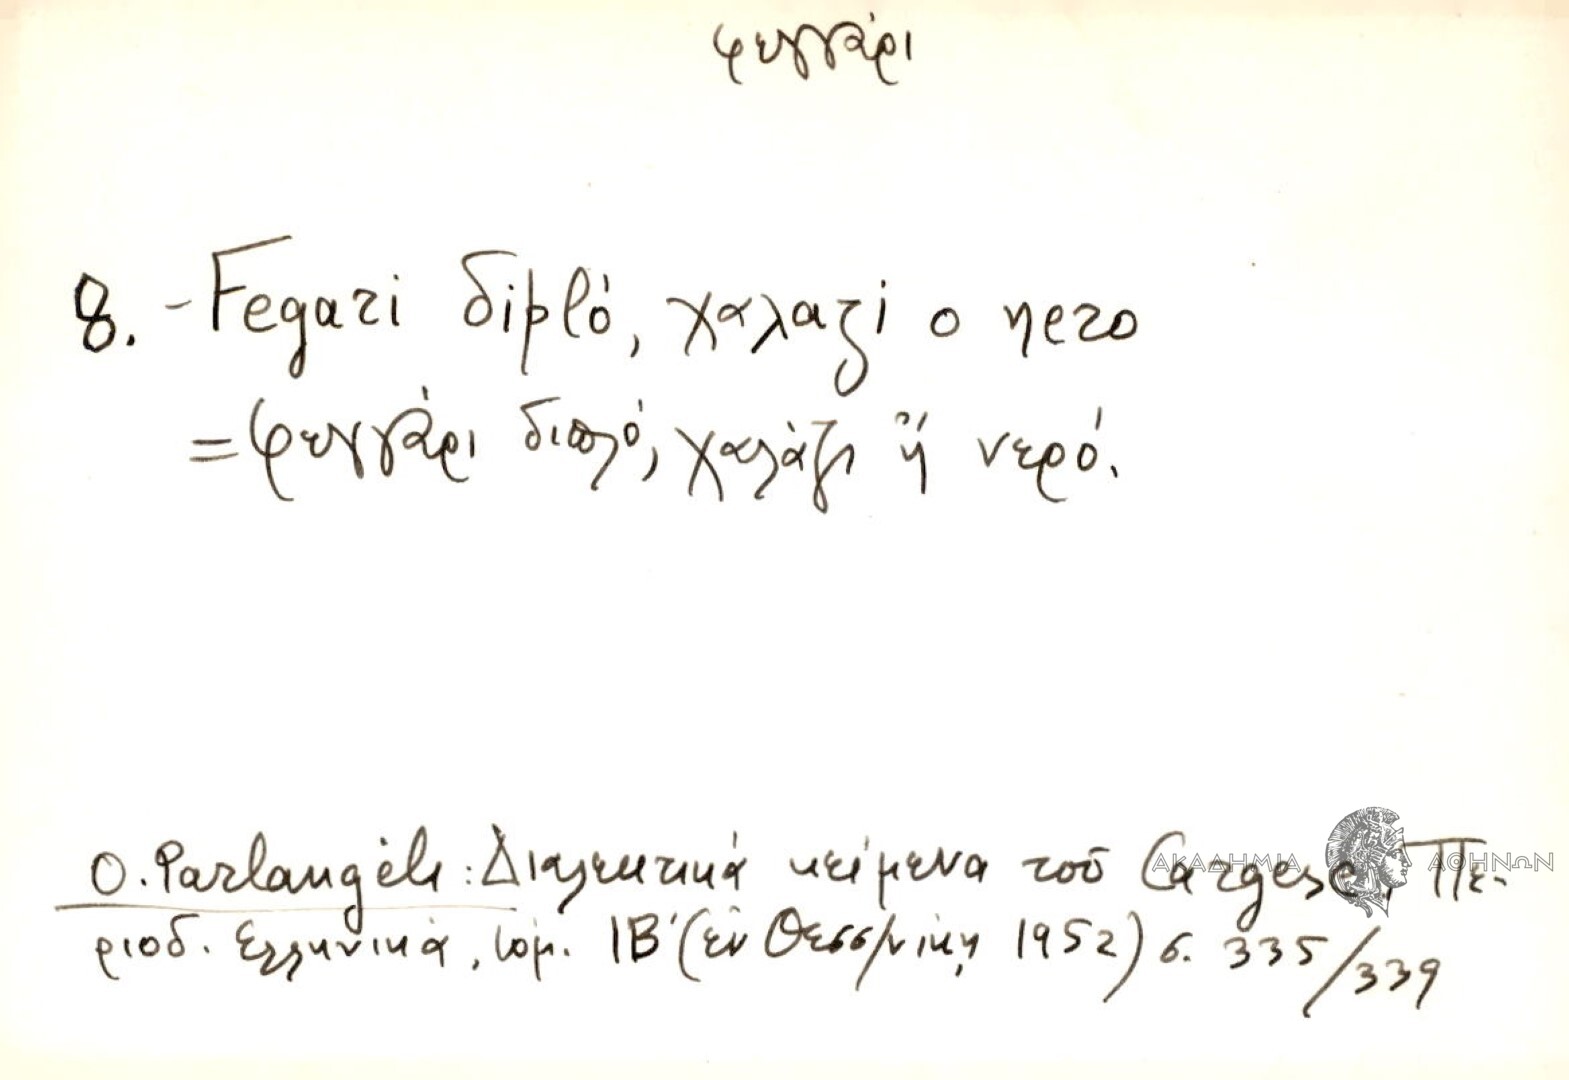 φεγγάρι
8. - Fegari δipló, χαλαζi o nero
= φεγγάρι διπλό, χαλάζι ἤ νερό.
O. Parlangèli: Διαλεκτικά κείμενα τοῦ Cargese, Πε-
ριοδ. Ἑλληνικά, τόμ. ΙΒ΄ (ἐν Θεσσ/νίκῃ 1952) σ. 335/339
ΑΚΑΔΗΜΙΑ ΑΘΗΝΩΝ